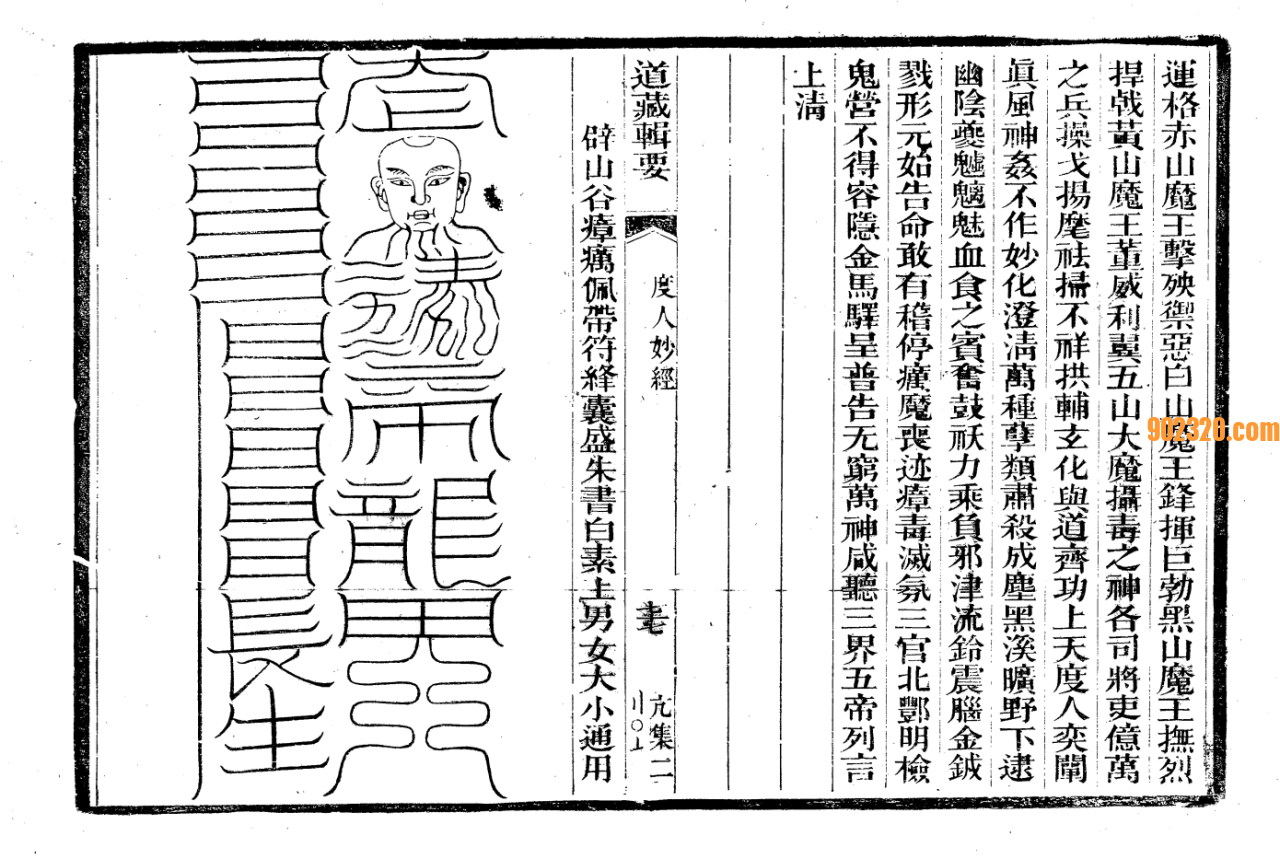 運格赤山魔王擊殃禦惡白山魔王鋒揮巨勃黑山魔王撫烈
捍戟黃山魔王董威利翼五山大魔攝毒之神各司將吏億萬
之兵操戈揚麾祛掃不祥拱輔玄化與道齊功上天度人奕闡
眞風神姦不作妙化澄清萬種孽類肅殺成塵黑溪曠野下逮
幽陰夔魖魑魅血食之賓奮鼓祅力乘負邪津流鈴震腦金鉞
戮形元始告命敢有稽停癘魔喪迹瘴毒滅氛三官北酆明檢
鬼營不得容隱金馬驛呈普告无窮萬神咸聽三界五帝列言
上清
道藏輯要
度人妙經
亢集二
辟山谷瘴癘佩帶符絳囊盛朱書白素上男女大小通用
902320.com